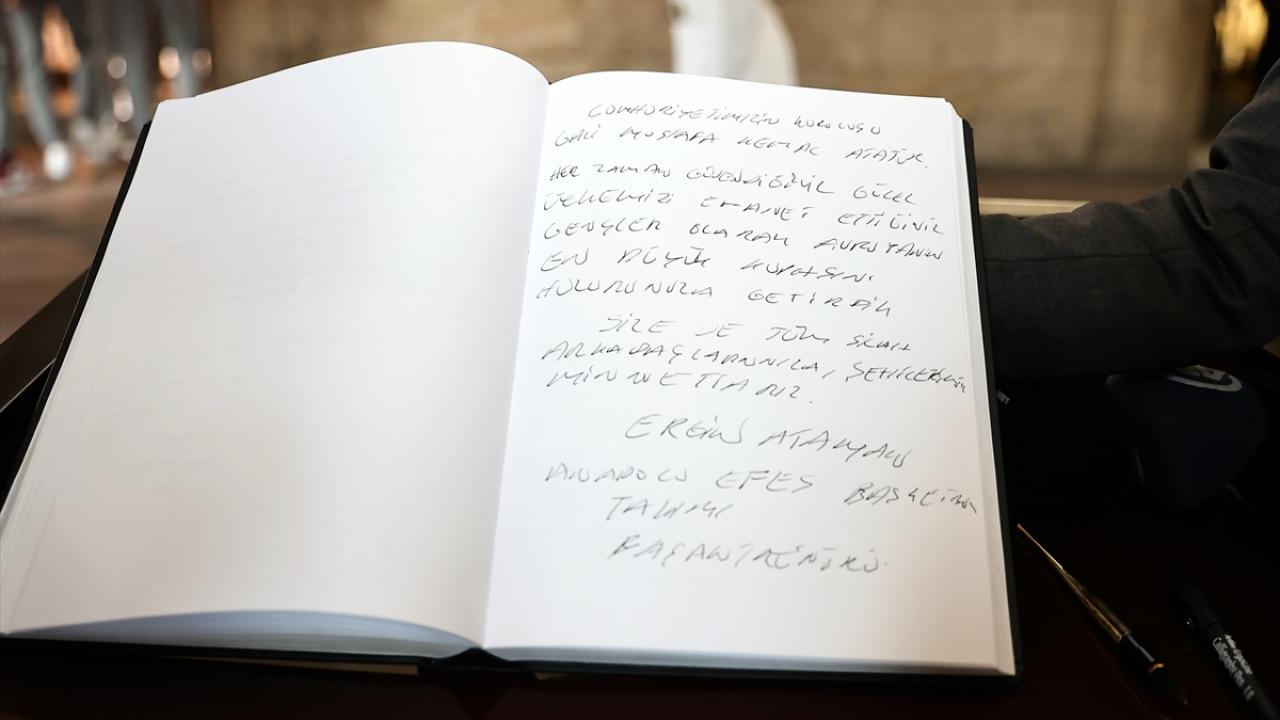 CUMHURİYETİMİZİN KURUCUSU
GAZİ MUSTAFA KEMAL ATATÜRK.
HER ZAMAN GÜVENDİĞİNİZ GÜZEL
ÜLKEMİZİ EMANET ETTİĞİNİZ
GENÇLER OLARAK AVRUPANIN
EN BÜYÜK KUPASINI
HUZURUNUZA GETİRDİK
SİZE VE TÜM SİLAH
ARKADAŞLARINIZA, ŞEHİTLERİMİZE
MİNNETTARIZ.
ERGİN ATAMAN
ANADOLU EFES BASKETBOL
TAKIMI
BAŞANTRENÖRÜ